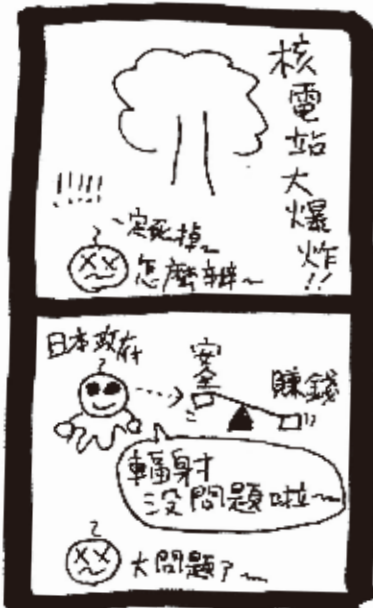 核電站大爆炸!!
!!!!!
一定死掉~
怎麼辦~
日本政府
安全
賺錢
輻射
沒問題啦~
大問題了~